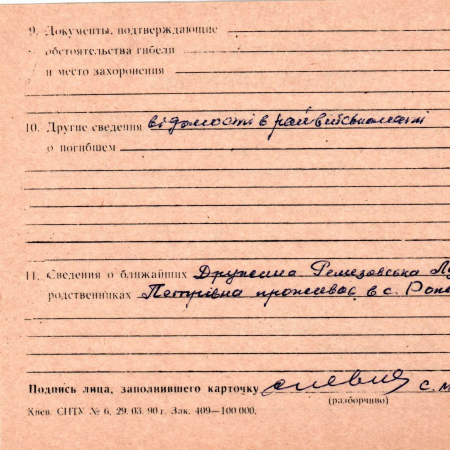 9. Документы, подтверждающие
обстоятельства гибели
и место захоронения
10. Другие сведения відомості в райвійськоматі
о погибшем
11. Сведения о ближайших Дружина Ремезовська
родственниках Петрівна проживає в с.
Подпись лица, заполнившего карточку
(разборчиво)
Киев. СПТУ № 6, 29. 03. 90 г. Зак. 409—100 000.